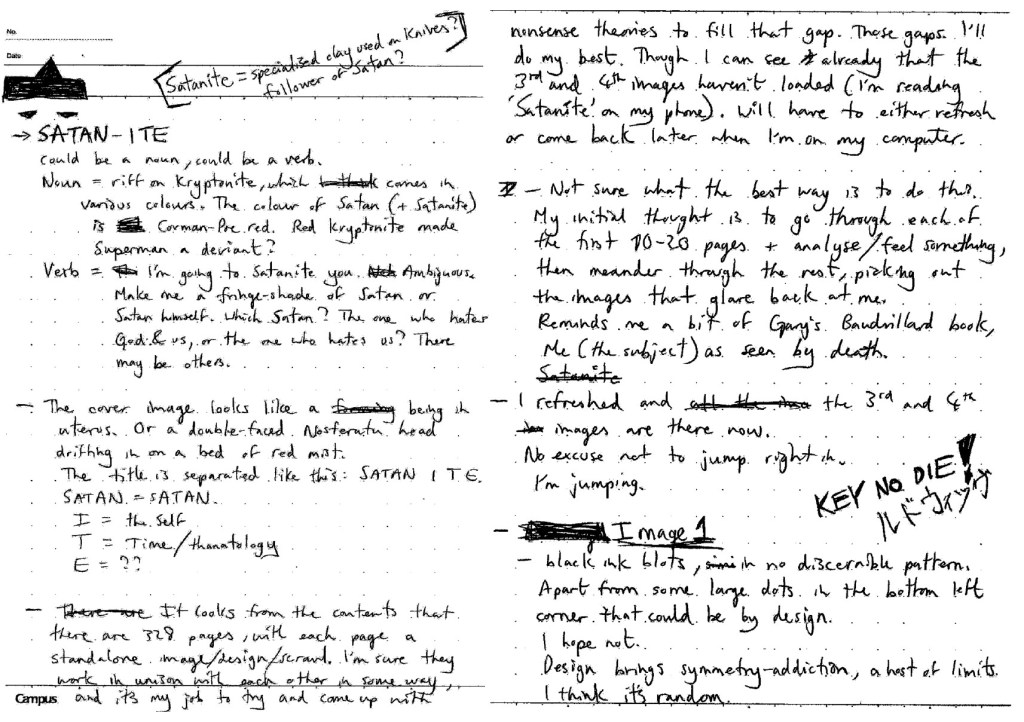 No.
Date
[Satanite = specialized clay used on knives?
follower of Satan?]
→ SATAN-ITE
could be a noun, could be a verb.
Noun = riff on Kryptonite, which comes in
various colours. The colour of Satan (+ Satanite)
is Corman-Poe red. Red Kryptonite made
Superman a deviant?
Verb = I'm going to Satanite you. Ambiguous.
Make me a fringe-shade of Satan or
Satan himself. Which Satan? The one who hates
God & us, or the one who hates us? There
may be others.
- The cover image looks like a being in
uterus. Or a double-faced Nosferatu head
drifting in on a bed of red mist.
The title is separated like this: SATAN I TE.
SATAN = SATAN.
I = the self
T = Time/thanatology
E = ??
- There are It looks from the contents that
there are 328 pages, with each page a
standalone image/design/scrawl. I'm sure they
work in unison with each other in some way,
Campus and it's my job to try and come up with
nonsense theories to fill that gap. Those gaps. I'll
do my best. Though I can see already that the
3rd and 4th images haven't loaded (I'm reading
'Satanite' on my phone). Will have to either refresh
or come back later when I'm on my computer.
- Not sure what the best way is to do this.
My initial thought is to go through each of
the first 10-20 pages + analyse/feel something,
then meander through the rest, picking out
the images that glare back at me.
Reminds me a bit of Gary's Baudrillard book,
Me (the subject) as seen by death.
Satanite
- I refreshed and the 3rd and 4th
images are there now.
No excuse not to jump right in.
I'm jumping.
KEY NO DIE!
ルドヴィッヴ
- Image 1
- black ink blots, in no discernible pattern.
Apart from some large dots in the bottom left
corner that could be by design.
I hope not.
Design brings symmetry-addiction, a host of limits.
I think it's random.